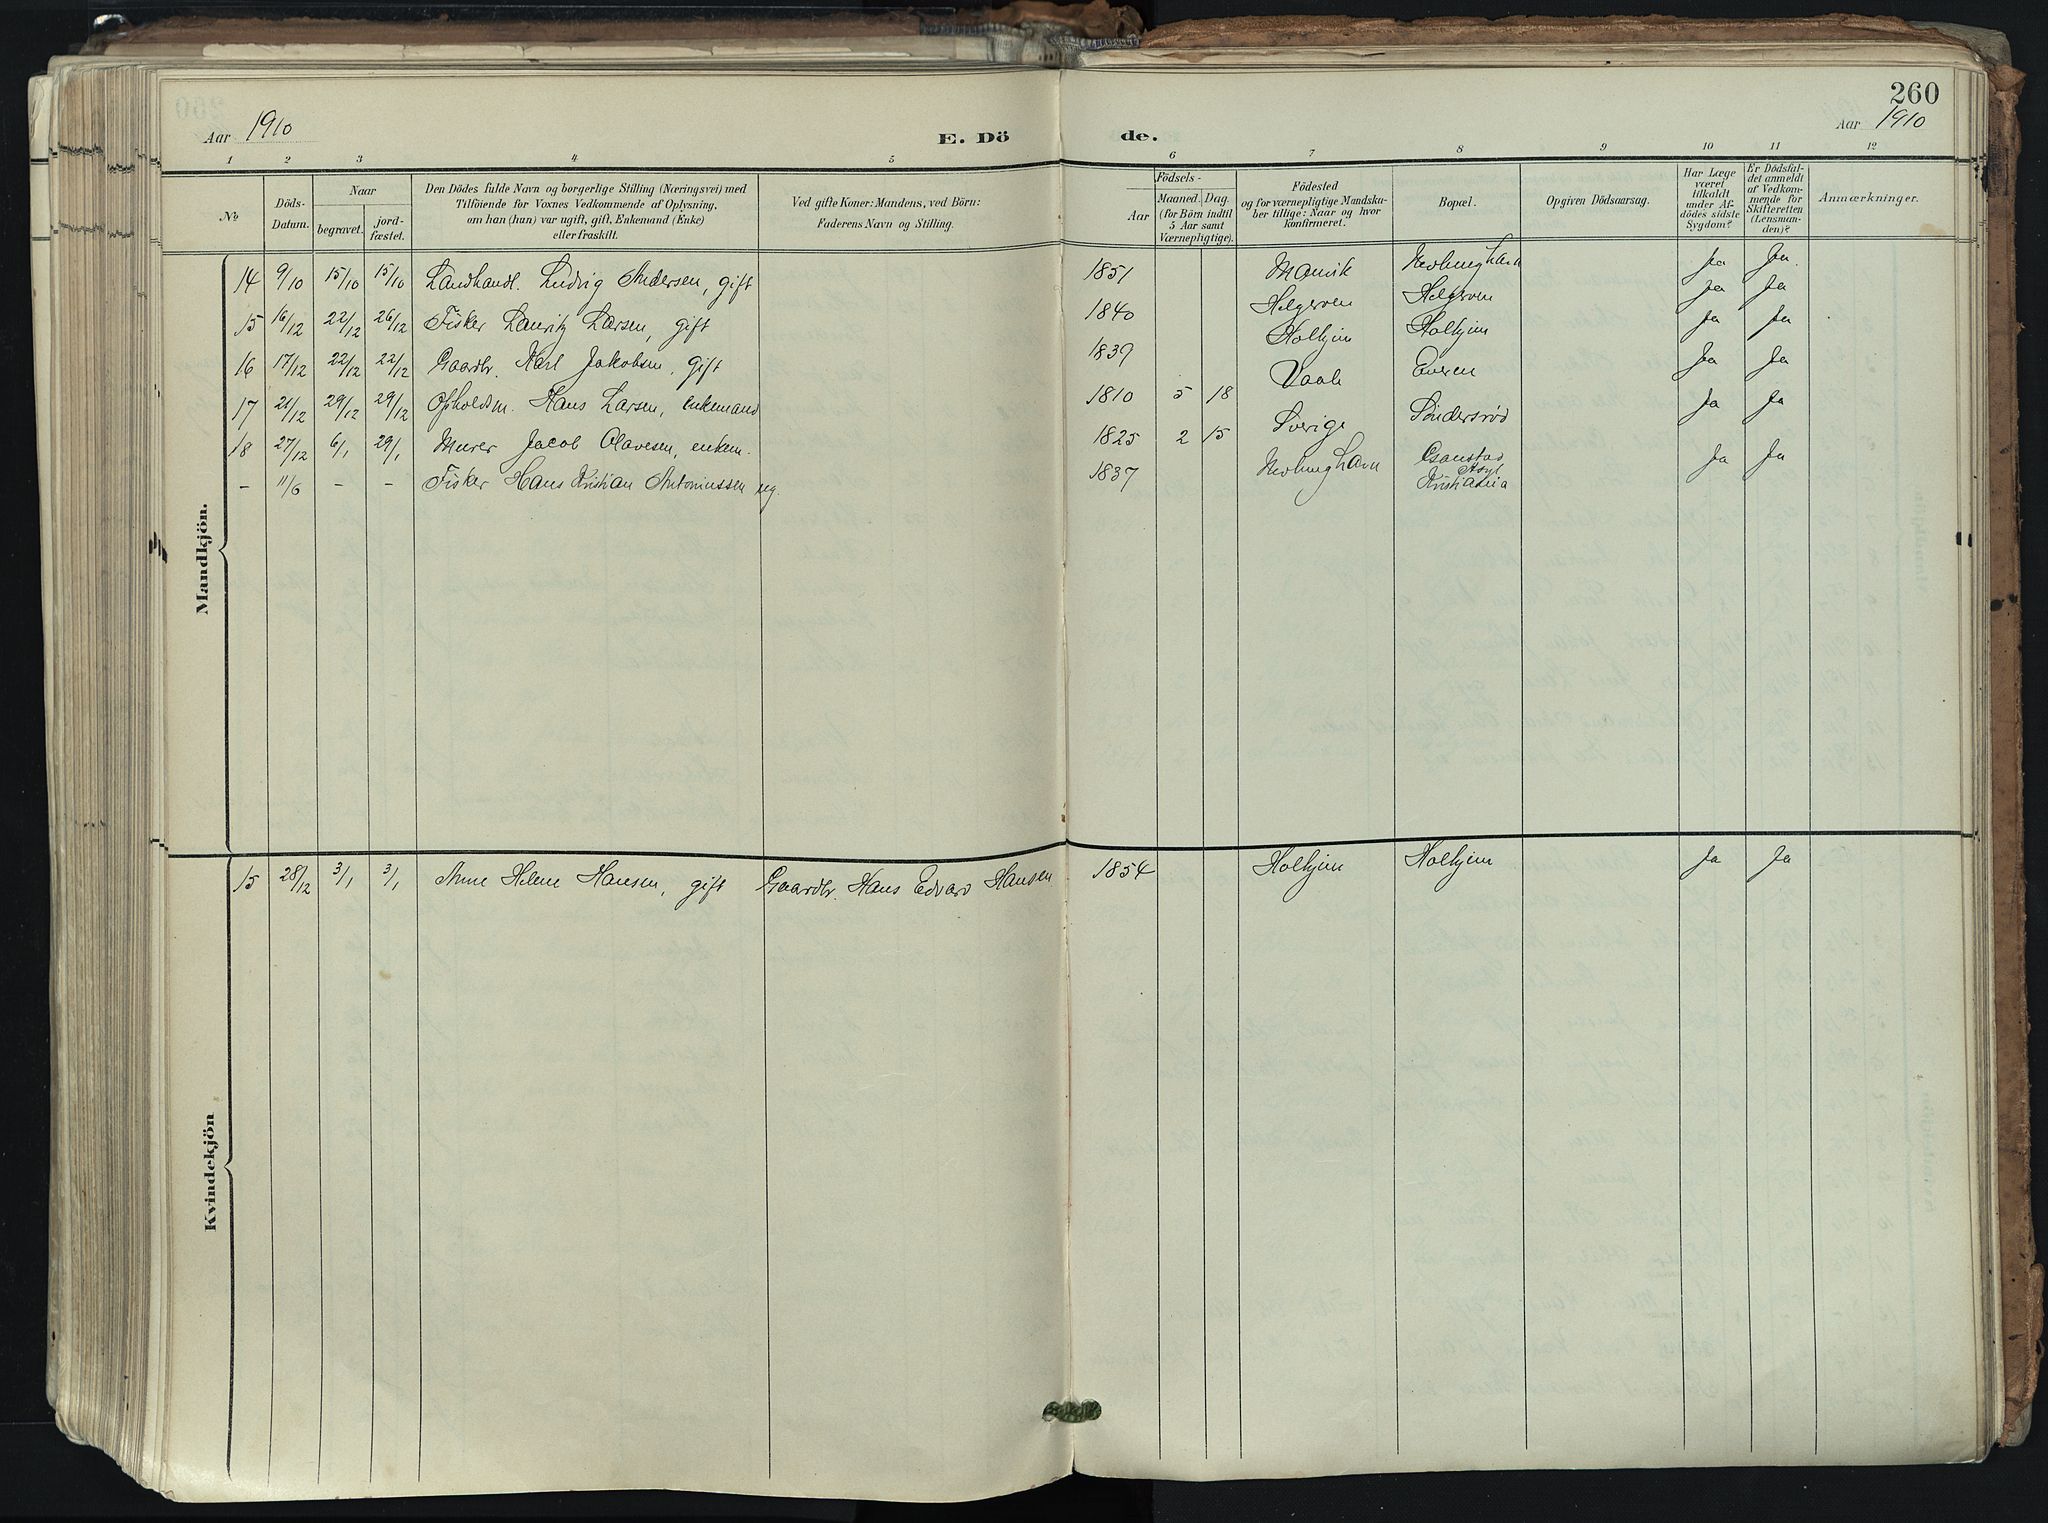 260
Aar 1910
E. Dö
de.
Aar 1910
1 2 3 4 5 6 7 8 9 10 11 12
No
Döds-
Datum.
Naar
begravet.
jord-
fæstet.
Den Dödes fulde Navn og borgerlige Stilling (Næringsvei) med
Tilföiende for Voxnes Vedkommende af Oplysning,
om han (hun) var ugift, gift, Enkemand (Enke)
eller fraskilt.
Ved gifte Koner: Mandens, ved Börn:
Faderens Navn og Stilling.
Födsels-
Aar
Maaned. Dag.
(for Börn indtil
5 Aar samt
Værnepligtige).
Födested
og for værnepligtige Mandska-
ber tillige: Naar og hvor
konfirmeret.
Bopæl.
Opgiven Dödsaarsag.
Har Læge
været
tilkaldt
under Af-
dödes sidste
Sygdom?
Er Dödsfal-
det anmeldt
af Vedkom-
mende for
Skifteretten
(Lensman-
den)?
Anmærkninger.
Mandkjön.
14 9/10 15/10 15/10 Landhandl. Ludvig Andersen, gift 1851 Manvik Nevlunghavn Ja Ja.
15 16/12 22/12 26/12 Fisker Lauritz Larsen, gift 1840 Helgeroen Helgeroen Ja Ja
16 17/12 22/12 22/12 Gaardbr. Karl Jakobsen, gift 1839 Holhjem Holhjem Ja Ja
17 21/12 29/12 29/12 Opholdsm. Hans Larsen, enkemand 1810 5 18 Vaale Ja Ja
18 27/12 6/1 29/1 Murer Jacob Olavesen, enkem. 1825 2 15 Sverige Söndersröd Ja Ja
- 11/6 - - Fisker Hans Kristian Antoniussen ug. 1837 Nevlunghavn Asyl Kristiania Ja Ja
Kvindekjön
15 28/12 3/1 3/1 Anne Helene Hansen, gift Gaardbr. Hans Edvard Hansen 1854 Holhjem Holhjem Ja Ja